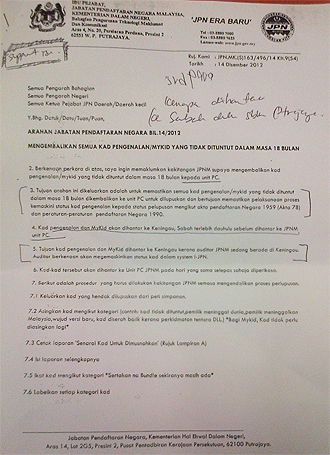 IBU PEJABAT,
JABATAN PENDAFTARAN NEGARA MALAYSIA,
KEMENTERIAN DALAM NEGERI,
Bahagian Pengurusan Teknologi Maklumat
Dan Komunikasi
Aras 4, No. 20, Persiaran Perdana, Presint 2
62551 W. P. PUTRAJAYA.
'JPN ERA BARU'
JPN
Tel : 03-8880 7000
Laman web : www.jpn.gov.my
Ruj. Kami : JPN.MK.(S)163/496/14 Klt.9(54)
Tarikh : 14 Disember 2012
Semua Pengarah Bahagian
Semua Pengarah Negeri
Semua Ketua Pejabat JPN Daerah/Daerah kecil
Kenapa dihantar
ke Sabah dulu
Putrajaya
Y.Bhg. Datuk/Dato/Tuan/Puan,
ARAHAN JABATAN PENDAFTARAN NEGARA BIL.14/2012
MENGEMBALIKAN SEMUA KAD PENGENALAN/MYKID YANG TIDAK DITUNTUT DALAM MASA 18 BULAN
2. Berkenaan perkara di atas, saya ingin memaklumkan kakitangan JPNM supaya mengembalikan kad
pengenalan/mykid yang tidak dituntut dalam masa 18 bulan kepada unit PC.
3. Tujuan arahan ini dikeluarkan adalah untuk memastikan semua kad pengenalan/mykid yang tidak dituntut
dalam masa 18 bulan dikembalikan ke unit PC untuk dilupuskan dan bertujuan memastikan pelaksanaan proses
kemaskini status kad pengenalan kepada status pelupusan mengikut akta pendaftaran Negara 1959 (Akta 78)
dan peraturan-peraturan pendaftaran Negara 1990.
4. Kad pengenalan dan MyKid dihantar ke Keningau, Sabah terlebih dahulu sebelum dihantar ke JPNM
unit PC.
5. Tujuan kad pengenalan dan MyKid dihantar ke Keningau kerana auditor JPNM sedang berada di Keningau
Auditor berkenaan akan mengemaskinikan status kad dalam system I-JPN.
6. Kad-kad tersebut akan dihantar ke Unit PC JPNM pada hari yang sama selepas sahaja diperiksa.
7. Berikut adalah prosedur yang harus dilakukan kakitangan JPNM semasa mengendalikan proses pelupusan.
7.1 Keluarkan kad yang hendak dilupuskan dari peti simpanan.
7.2 Asingkan kad mengikut kategori (contoh: kad tidak dituntut,pemilik meninggal dunia,pemilik meninggalkan
Malaysia,wujud versi baru, kad daerah balik kerana perkhidmatan tentera DLL.) *Bagi Mykid, Kad tidak perlu
diasingkan lagi*
7.3 Cetak laporan 'Senarai Kad Untuk Dimusnahkan' (Rujuk Lampiran A)
7.4 Isi laporan selengkapnya
7.5 Ikat kad mengikut kategori *Sertakan no Bundle seiiranya masih ada*
7.6 Labelkan setiap kategori kad
Jabatan Pendaftaran Negara, Kementerian Hal Ehwal Dalam Negeri,
Aras 14, Lot 2G5, Presint 2, Pusat Pentadbiran Kerajaan Persekutuan, 62100 Putrajaya.